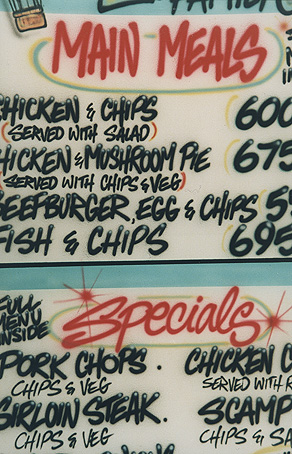 FAMILY
MAIN MEALS
CHICKEN & CHIPS 600
(SERVED WITH SALAD)
CHICKEN & MUSHROOM PIE 675
(SERVED WITH CHIPS & VEG)
BEEFBURGER, EGG & CHIPS 55
FISH & CHIPS 695
FULL MENU INSIDE
Specials
PORK CHOPS.
CHIPS & VEG
SIRLOIN STEAK.
CHIPS & VEG
CHICKEN C
SERVED WITH R
SCAMP
CHIPS & SA